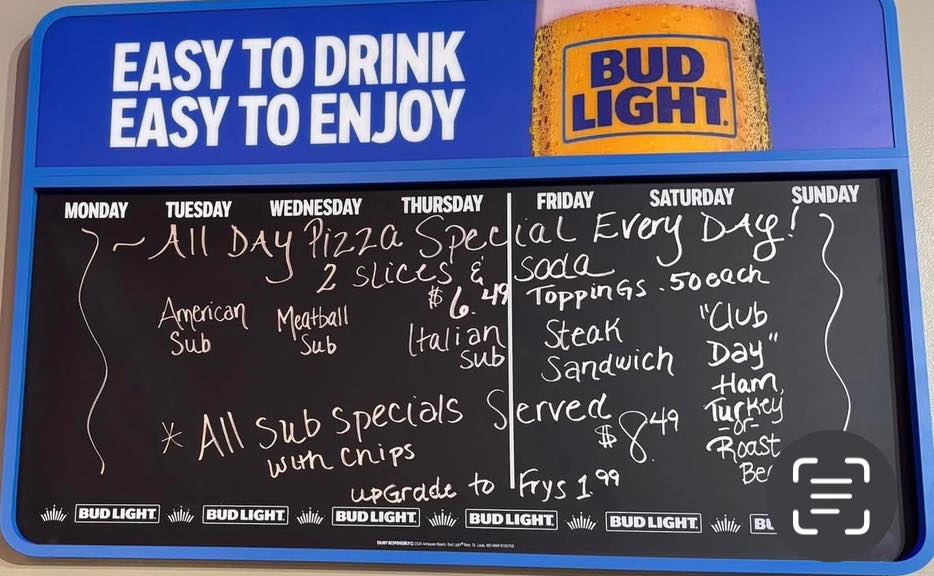 EASY TO DRINK
EASY TO ENJOY
BUD
LIGHT.
MONDAY TUESDAY WEDNESDAY THURSDAY FRIDAY SATURDAY SUNDAY
~ All DAy Pizza Special Every DAy!
2 slices & soda
$6.49 Toppings .50 each
American
Sub
Meatball
Sub
Italian
Sub
Steak
Sandwich
"Club
Day"
Ham,
Turkey
-or-
Roast
* All Sub specials Served
with chips
$8.49
upGrade to Frys 1.99
BUD LIGHT. BUD LIGHT. BUD LIGHT. BUD LIGHT. BUD LIGHT.